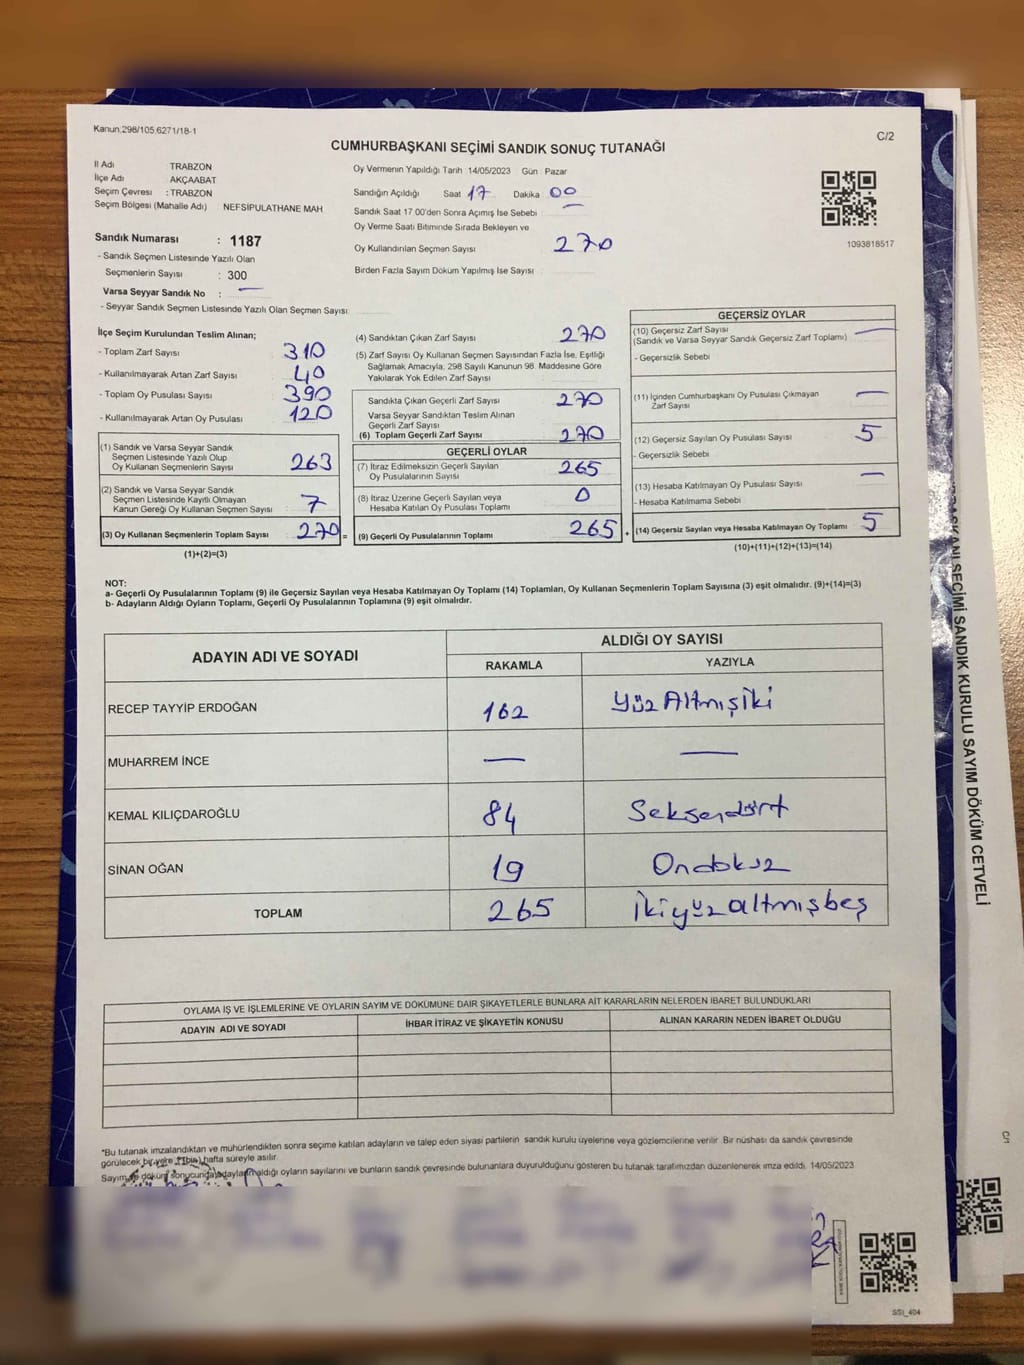 Kanun.298/105.6271/18-1
C/2
CUMHURBAŞKANI SEÇİMİ SANDIK SONUÇ TUTANAĞI
İl Adı TRABZON
İlçe Adı AKÇAABAT
Seçim Çevresi : TRABZON
Seçim Bölgesi (Mahalle Adı) NEFSİPULATHANE MAH
Sandık Numarası : 1187
- Sandık Seçmen Listesinde Yazılı Olan
Seçmenlerin Sayısı : 300
Varsa Seyyar Sandık No : —
- Seyyar Sandık Seçmen Listesinde Yazılı Olan Seçmen Sayısı
Oy Vermenin Yapıldığı Tarih 14/05/2023 Gün : Pazar
Sandığın Açıldığı Saat 17 Dakika 00
Sandık Saat 17.00'den Sonra Açımış İse Sebebi —
Oy Verme Saati Bitiminde Sırada Bekleyen ve
Oy Kullandırılan Seçmen Sayısı 270
Birden Fazla Sayım Döküm Yapılmış İse Sayısı
1093818517
İlçe Seçim Kurulundan Teslim Alınan;
- Toplam Zarf Sayısı 310
- Kullanılmayarak Artan Zarf Sayısı 40
- Toplam Oy Pusulası Sayısı 390
- Kullanılmayarak Artan Oy Pusulası 120
(1) Sandık ve Varsa Seyyar Sandık
Seçmen Listesinde Yazılı Olup
Oy Kullanan Seçmenlerin Sayısı 263
(2) Sandık ve Varsa Seyyar Sandık
Seçmen Listesinde Kayıtlı Olmayan
Kanun Gereği Oy Kullanan Seçmen Sayısı 7
(3) Oy Kullanan Seçmenlerin Toplam Sayısı 270 =
(1)+(2)=(3)
(4) Sandıktan Çıkan Zarf Sayısı 270
(5) Zarf Sayısı Oy Kullanan Seçmen Sayısından Fazla İse, Eşitliği
Sağlamak Amacıyla, 298 Sayılı Kanunun 98. Maddesine Göre
Yakılarak Yok Edilen Zarf Sayısı
Sandıkta Çıkan Geçerli Zarf Sayısı 270
Varsa Seyyar Sandıktan Teslim Alınan
Geçerli Zarf Sayısı
(6) Toplam Geçerli Zarf Sayısı 270
GEÇERLİ OYLAR
(7) İtiraz Edilmeksizin Geçerli Sayılan
Oy Pusulalarının Sayısı 265
(8) İtiraz Üzerine Geçerli Sayılan veya
Hesaba Katılan Oy Pusulası Toplamı 0
(9) Geçerli Oy Pusulalarının Toplamı 265 +
GEÇERSİZ OYLAR
(10) Geçersiz Zarf Sayısı
(Sandık ve Varsa Seyyar Sandık Geçersiz Zarf Toplamı) —
- Geçersizlik Sebebi
(11) İçinden Cumhurbaşkanı Oy Pusulası Çıkmayan
Zarf Sayısı —
(12) Geçersiz Sayılan Oy Pusulası Sayısı 5
- Geçersizlik Sebebi
(13) Hesaba Katılmayan Oy Pusulası Sayısı —
- Hesaba Katılmama Sebebi
(14) Geçersiz Sayılan veya Hesaba Katılmayan Oy Toplamı 5
(10)+(11)+(12)+(13)=(14)
NOT:
a- Geçerli Oy Pusulalarının Toplamı (9) ile Geçersiz Sayılan veya Hesaba Katılmayan Oy Toplamı (14) Toplamları, Oy Kullanan Seçmenlerin Toplam Sayısına (3) eşit olmalıdır. (9)+(14)=(3)
b- Adayların Aldığı Oyların Toplamı, Geçerli Oy Pusulalarının Toplamına (9) eşit olmalıdır.
ADAYIN ADI VE SOYADI ALDIĞI OY SAYISI
RAKAMLA YAZIYLA
RECEP TAYYİP ERDOĞAN 162 Yüz Altmışiki
MUHARREM İNCE — —
KEMAL KILIÇDAROĞLU 84 Seksendört
SİNAN OĞAN 19 Ondokuz
TOPLAM 265 İkiyüzaltmışbeş
OYLAMA İŞ VE İŞLEMLERİNE VE OYLARIN SAYIM VE DÖKÜMÜNE DAİR ŞİKAYETLERLE BUNLARA AİT KARARLARIN NELERDEN İBARET BULUNDUKLARI
ADAYIN ADI VE SOYADI İHBAR İTİRAZ VE ŞİKAYETİN KONUSU ALINAN KARARIN NEDEN İBARET OLDUĞU
*Bu tutanak imzalandıktan ve mühürlendikten sonra seçime katılan adayların ve talep eden siyasi partilerin sandık kurulu üyelerine veya gözlemcilerine verilir. Bir nüshası da sandık çevresinde
görülecek bir yere hafta süreyle asılır.
Sayım ve döküm sonucunda adayların aldığı oyların sayılarını ve bunların sandık çevresinde bulunanlara duyurulduğunu gösteren bu tutanak tarafımızdan düzenlenerek imza edildi. 14/05/2023
SSI_404
SEÇİMİ SANDIK KURULU SAYIM DÖKÜM CETVELİ